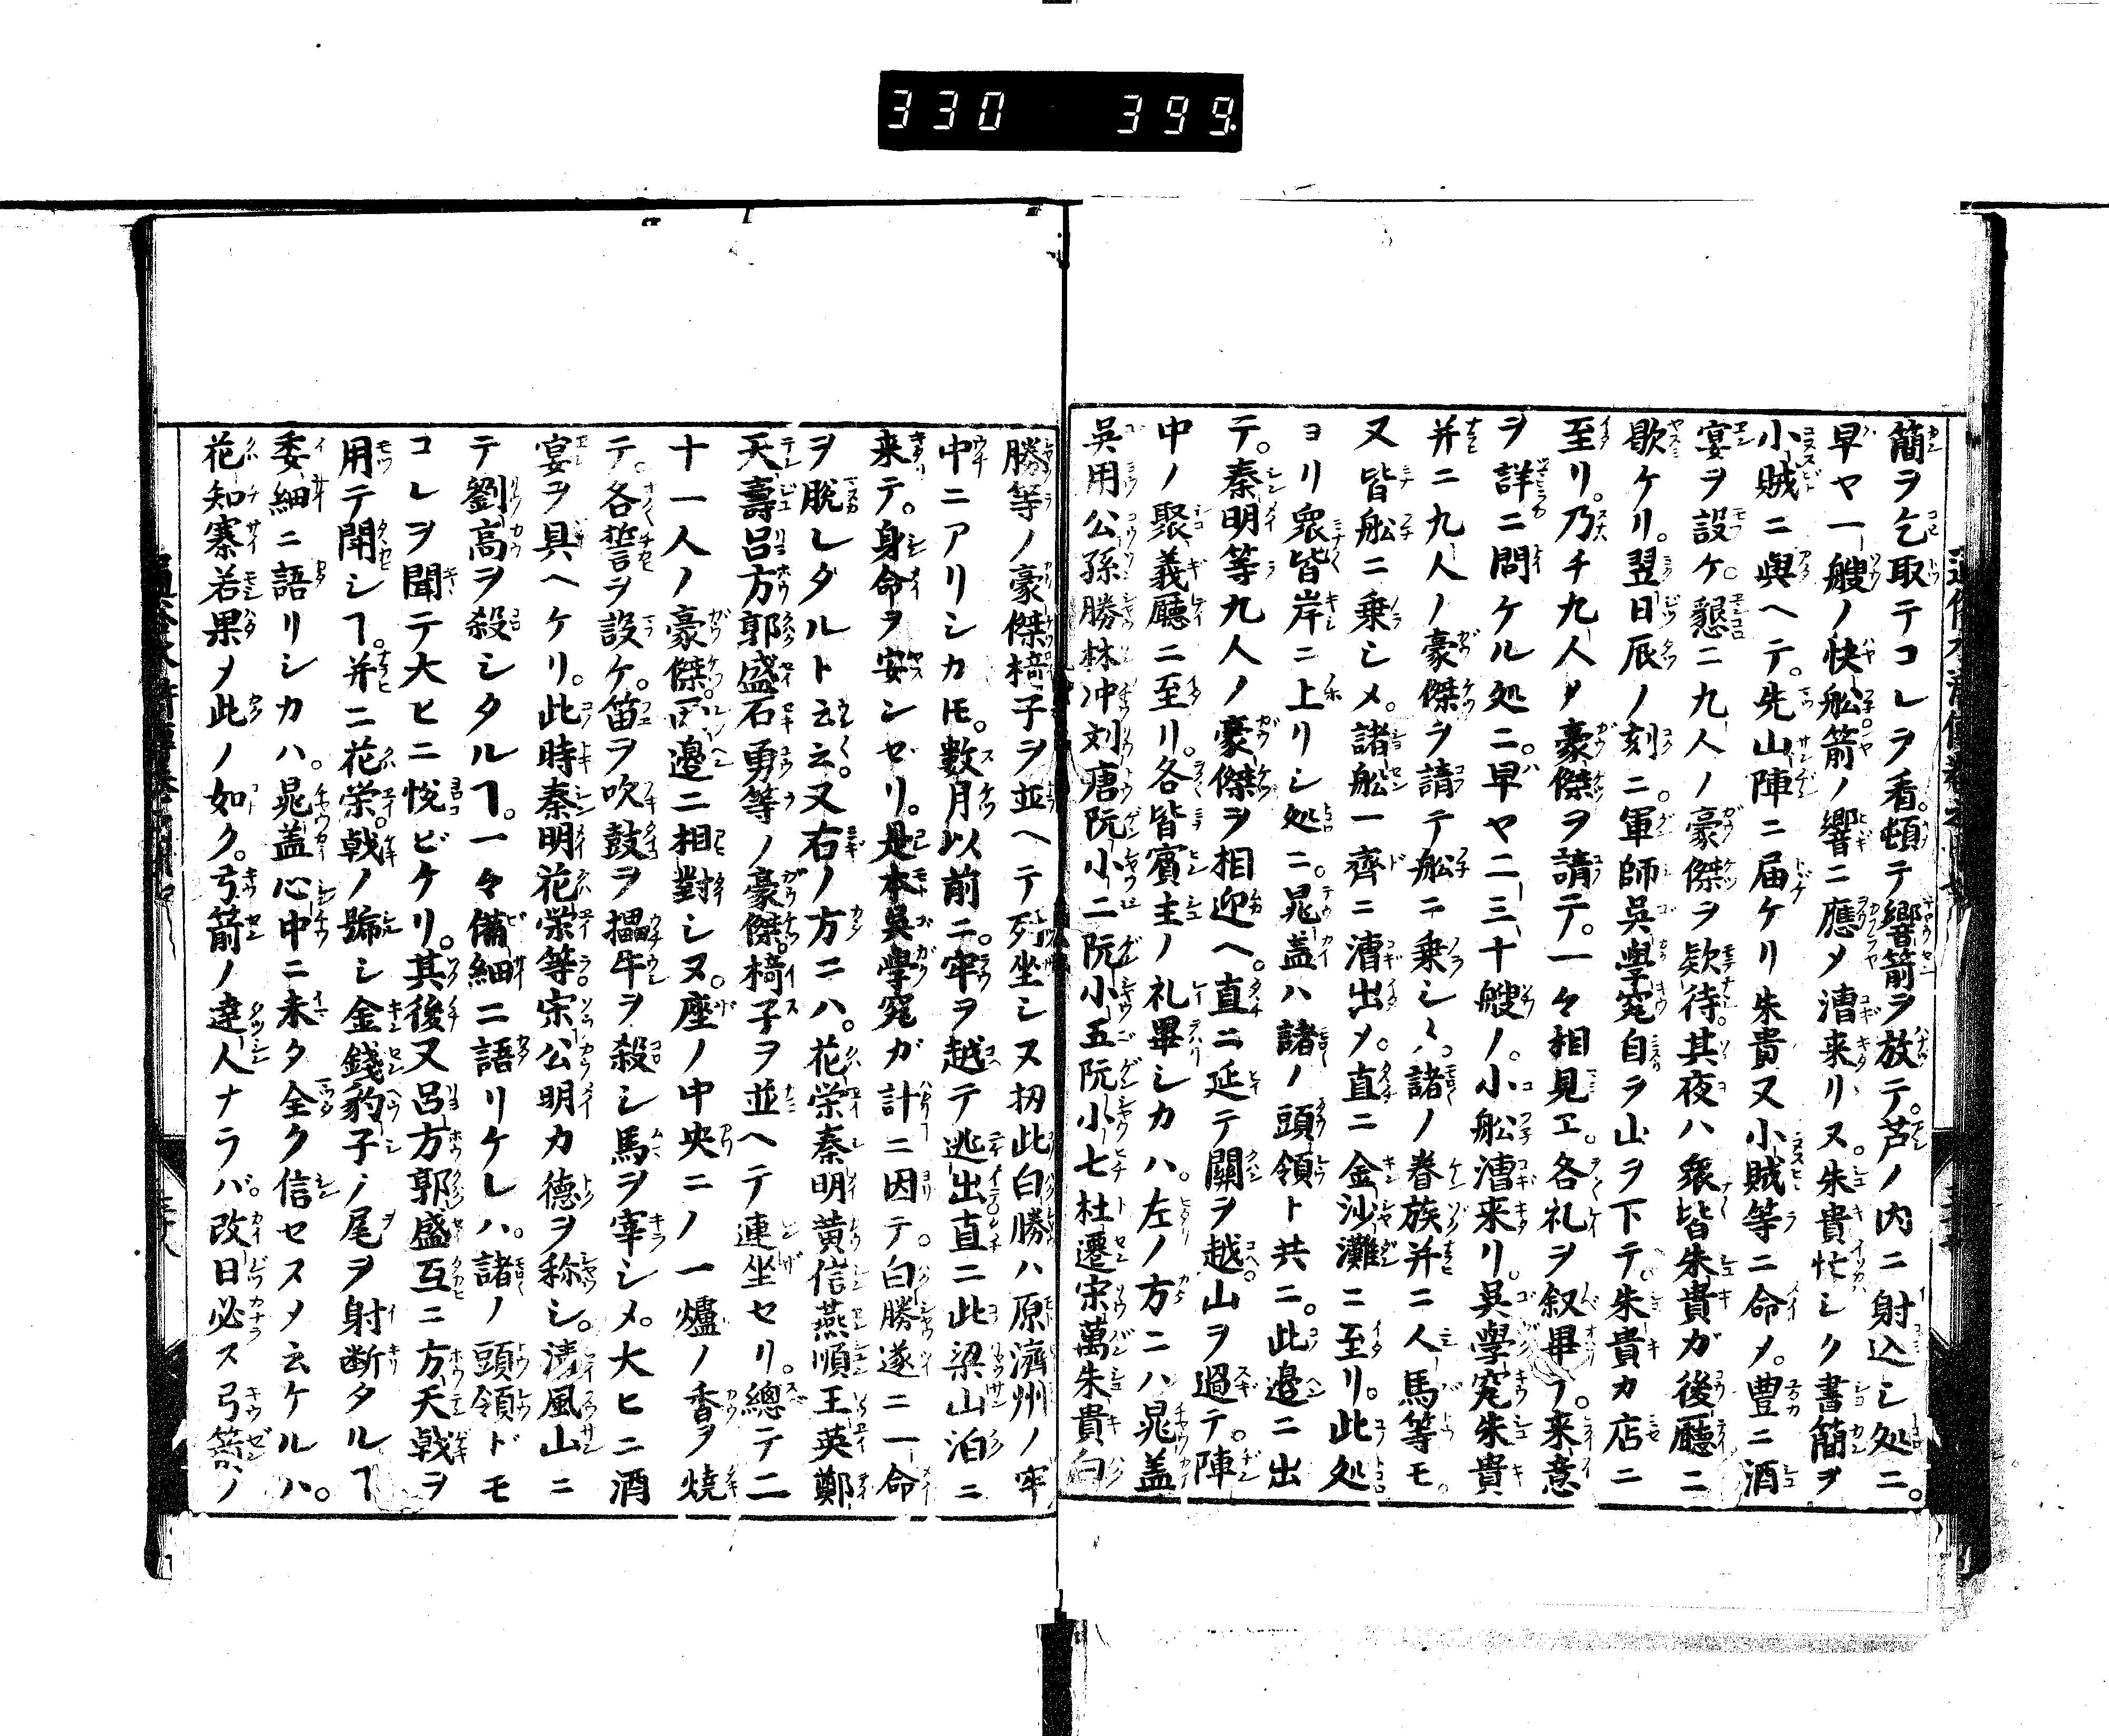 330 399
簡ヲ乞取テコレヲ看。頓テ響箭ヲ放テ。芦ノ内ニ射込シ処ニ。
早ヤ一艘ノ快舩箭ノ響ニ應メ漕来リヌ。朱貴忙シク書簡ヲ
小賊ニ與ヘテ。先山陣ニ届ケリ朱貴又小賊等ニ命メ。豊ニ酒
宴ヲ設ケ。懇ニ九人ノ豪傑ヲ欵待。其夜ハ衆皆朱貴ガ後廳ニ
歇ケリ。翌日辰ノ刻ニ。軍師呉學究自ラ山ヲ下テ。朱貴カ店ニ
至リ。乃チ九人ノ豪傑ヲ請テ。一々相見エ。各礼ヲ叙畢フ。来意
ヲ詳ニ問ケル処ニ。早ヤ二三十艘ノ。小舩漕来リ。呉學究朱貴
并ニ九人ノ豪傑ヲ請テ舩ニ乗シメ。諸ノ眷族并ニ人馬等モ。
又皆舩ニ乗シメ。諸舩一齊ニ漕出メ。直ニ金沙灘ニ至リ。此処
ヨリ衆皆岸ニ上リシ処ニ。晁盖ハ諸ノ頭領ト共ニ。此邉ニ出
テ。秦明等九人ノ豪傑ヲ相迎ヘ。直ニ延テ關ヲ越。山ヲ過テ。陣
中ノ聚義廳ニ至リ。各皆賓主ノ礼畢シカハ。左ノ方ニハ晁盖
呉用公孫勝林冲刘唐阮小二阮小五阮小七杜遷宋萬朱貴白
勝等ノ豪傑椅子ヲ並ヘテ列坐シヌ扨此白勝ハ原濟州ノ牢
中ニアリシカ𪜈。數月以前ニ。牢ヲ越テ逃出直ニ此梁山泊ニ
来テ。身命ヲ安ンゼリ。是本呉學究ガ計ニ因テ。白勝遂ニ一命
ヲ脱レダルト云云。又右ノ方ニハ。花栄秦明黄信燕順王英鄭
天壽呂方郭盛石勇等ノ豪傑。椅子ヲ並ヘテ連坐セリ。總テ二
十一人ノ豪傑。両邉ニ相對シヌ。座ノ中央ニノ一爐ノ香ヲ焼
テ。各誓ヲ設ケ。笛ヲ吹鼓ヲ擂牛ヲ殺シ馬ヲ宰シメ。大ヒニ酒
宴ヲ具ヘケリ。此時秦明花栄等。宋公明カ德ヲ称シ。清風山ニ
テ劉高ヲ殺シタルヿ。一々備細ニ語リケレハ。諸ノ頭領ドモ
コレヲ聞テ大ヒニ悅ビケリ。其後又呂方郭盛互ニ方天戟ヲ
用テ閗シヿ。并ニ花栄。戟ノ號シ金錢豹子ノ尾ヲ射断タルヿ
委細ニ語リシカハ。晁盖心中ニ未タ全ク信セスメ云ケルハ。
花知寨若果メ此ノ如ク。弓箭ノ達人ナラバ。改日必ス弓箭ノ